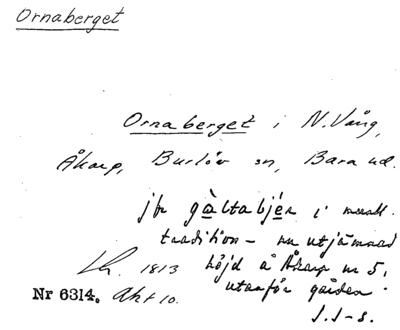 Ornaberget
Ornaberget i N. Vång,
Åkarp, Burlöv sn, Bara hd.
jfr gàltabjér i muntl.
tradition – nu utjämnad
Lk. 1813 höjd å Åkarp nr 5,
Nr 6314. Akt 10. utanför gården.
J. J-s.